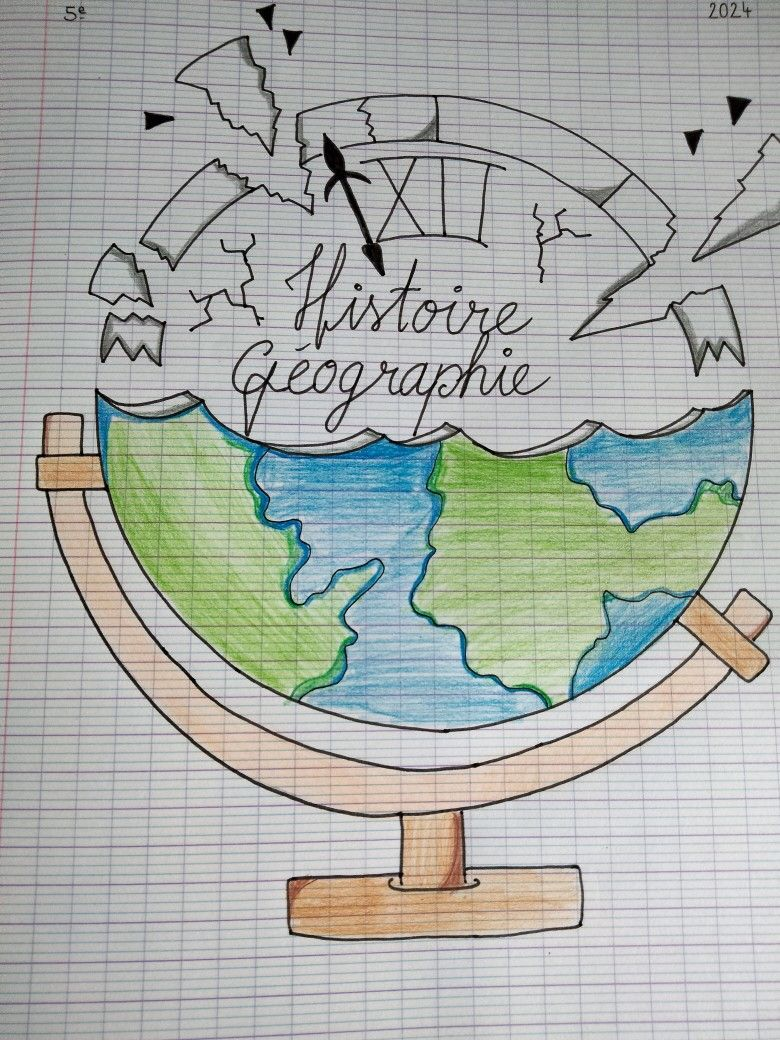 5e
2024
XII
Histoire
Géographie